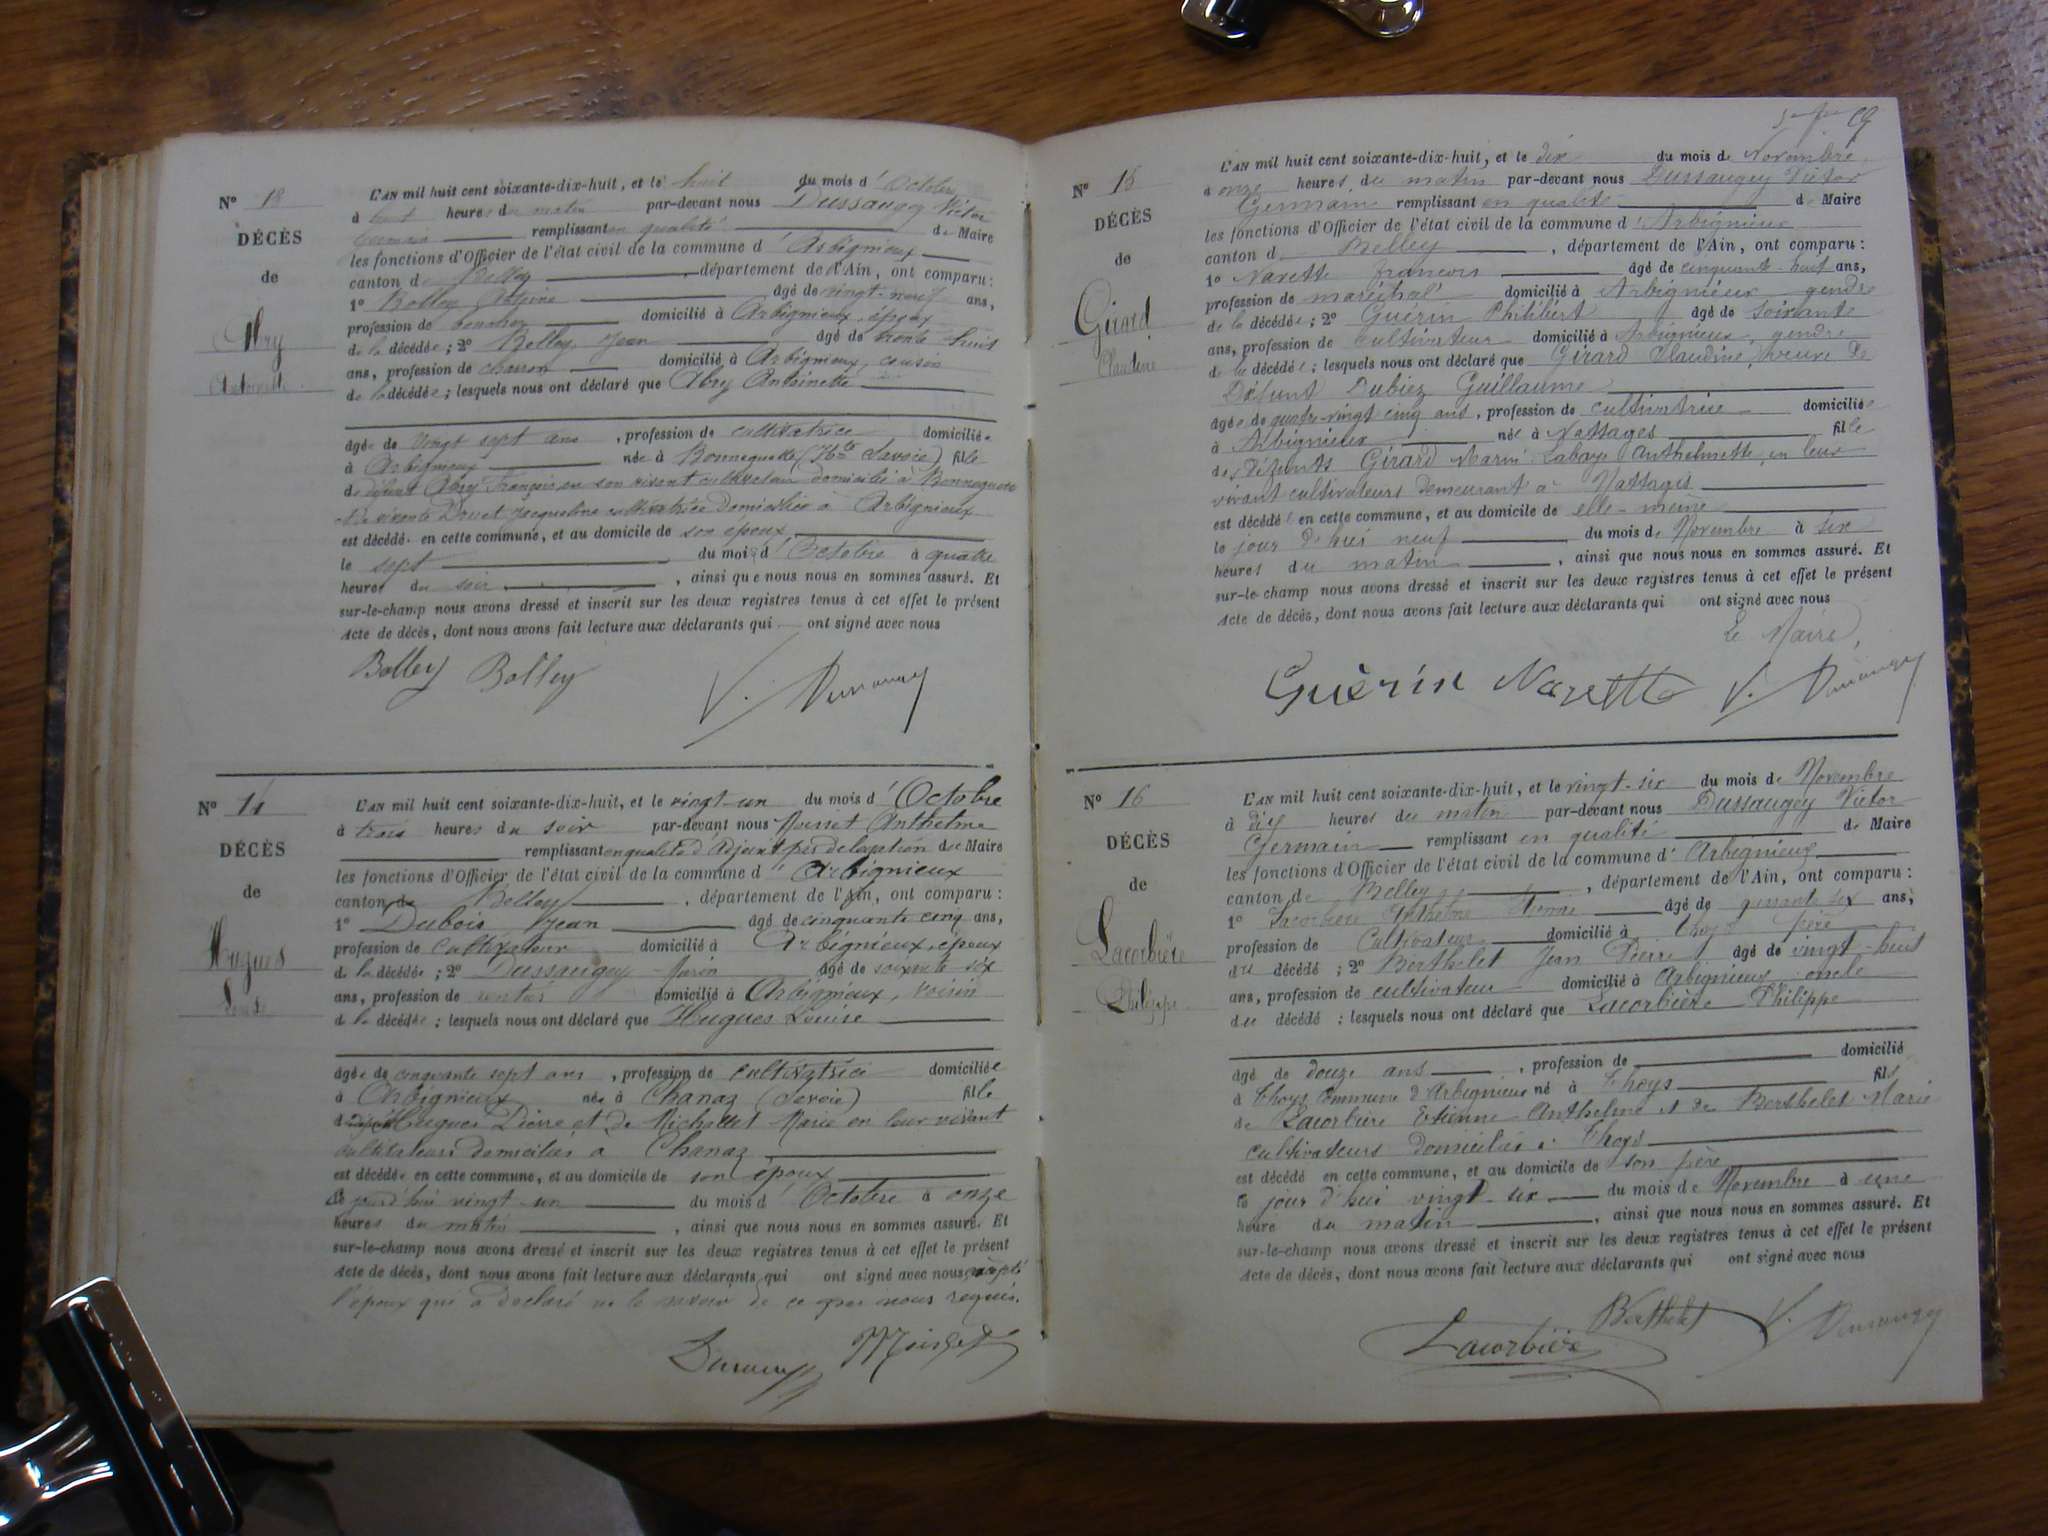 N° 13
DÉCÈS
de
Abry
Antoinette
L'AN mil huit cent soixante-dix-huit, et le huit du mois d'Octobre
à huit heures du matin par-devant nous Dussaugey Victor
Germain remplissant en qualité de Maire
les fonctions d'Officier de l'état civil de la commune d'Arbignieux
canton de Belley, département de l'Ain, ont comparu :
1° Bolley âgé de vingt-neuf ans,
profession de domicilié à Arbignieux, époux
de la décédée ; 2° Belley Jean âgé de trente huit
ans, profession de charron domicilié à Arbignieux, cousin
de la décédée ; lesquels nous ont déclaré que Abry Antoinette
âgée de vingt sept ans, profession de cultivatrice domiciliée
à Arbignieux née à Bonneguette (Hte Savoie) fille
de défunt Abry François en son vivant cultivateur domicilié à Bonneguette
Jacqueline cultivatrice domiciliée à Arbignieux
est décédé en cette commune, et au domicile de son époux
le sept du mois d'Octobre à quatre
heures du soir, ainsi que nous nous en sommes assuré. Et
sur-le-champ nous avons dressé et inscrit sur les deux registres tenus à cet effet le présent
Acte de décès, dont nous avons fait lecture aux déclarants qui ont signé avec nous
Bolley Bolley V. Dussaugey
N° 14
DÉCÈS
de
Hugues
Louise
L'AN mil huit cent soixante-dix-huit, et le vingt-un du mois d'Octobre
à trois heures du soir par-devant nous Moisset Anthelme
remplissant en qualité d'Adjoint par délégation de Maire
les fonctions d'Officier de l'état civil de la commune d'Arbignieux
canton de Belley, département de l'Ain, ont comparu :
1° Dubois Jean âgé de cinquante cinq ans,
profession de cultivateur domicilié à Arbignieux, époux
de la décédée ; 2° Dussaugey âgé de soixante six
ans, profession de rentier domicilié à Arbignieux, voisin
de la décédée ; lesquels nous ont déclaré que Hugues Louise
âgée de cinquante sept ans, profession de cultivatrice domiciliée
à Arbignieux née à Chanaz (Savoie) fille
de Hugues Pierre et de Michellet Marie en leur vivant
cultivateurs domiciliés à Chanaz
est décédée en cette commune, et au domicile de son époux
le jourd'hui vingt-un du mois d'Octobre à onze
heures du matin, ainsi que nous nous en sommes assuré. Et
sur-le-champ nous avons dressé et inscrit sur les deux registres tenus à cet effet le présent
Acte de décès, dont nous avons fait lecture aux déclarants qui ont signé avec nous excepté
l'époux qui a déclaré ne le savoir de ce par nous requis.
Dussaugey Moisset
69
N° 15
DÉCÈS
de
Girard
Claudine
L'AN mil huit cent soixante-dix-huit, et le dix du mois de Novembre
à onze heures du matin par-devant nous Dussaugey Victor
Germain remplissant en qualité de Maire
les fonctions d'Officier de l'état civil de la commune d'Arbignieux
canton de Belley, département de l'Ain, ont comparu :
1° Navette françois âgé de cinquante-huit ans,
profession de maréchal domicilié à Arbignieux gendre
de la décédée ; 2° Guérin Philibert âgé de soixante
ans, profession de cultivateur domicilié à Arbignieux, gendre
de la décédée ; lesquels nous ont déclaré que Girard Claudine, veuve de
Défunt Dubiez Guillaume
âgée de quatre-vingt cinq ans, profession de cultivatrice domiciliée
à Arbignieux née à Nattages fille
de Défunts Girard Marin Labaye Anthelmette en leur
vivant cultivateurs demeurant à Nattages
est décédée en cette commune, et au domicile de elle-même
le jour d'hui neuf du mois de Novembre à six
heures du matin, ainsi que nous nous en sommes assuré. Et
sur-le-champ nous avons dressé et inscrit sur les deux registres tenus à cet effet le présent
Acte de décès, dont nous avons fait lecture aux déclarants qui ont signé avec nous
Le Maire,
Guèrin Navette V. Dussaugey
N° 16
DÉCÈS
de
Lacorbière
Philippe
L'AN mil huit cent soixante-dix-huit, et le vingt-six du mois de Novembre
à dix heures du matin par-devant nous Dussaugey Victor
Germain remplissant en qualité de Maire
les fonctions d'Officier de l'état civil de la commune d'Arbignieux
canton de Belley, département de l'Ain, ont comparu :
1° Lacorbière Anthelme Etienne âgé de quarante six ans,
profession de cultivateur domicilié à Thoys père
du décédé ; 2° Berthelet Jean Pierre âgé de vingt-huit
ans, profession de cultivateur domicilié à Arbignieux oncle
du décédé ; lesquels nous ont déclaré que Lacorbière Philippe
âgé de douze ans, profession de domicilié
à Thoys commune d'Arbignieux né à Thoys fils
de Lacorbière Etienne Anthelme et de Berthelet Marie
cultivateurs domiciliés à Thoys
est décédé en cette commune, et au domicile de son père
le jour d'hui vingt-six du mois de Novembre à une
heure du matin, ainsi que nous nous en sommes assuré. Et
sur-le-champ nous avons dressé et inscrit sur les deux registres tenus à cet effet le présent
Acte de décès, dont nous avons fait lecture aux déclarants qui ont signé avec nous
Lacorbière Berthelet V. Dussaugey